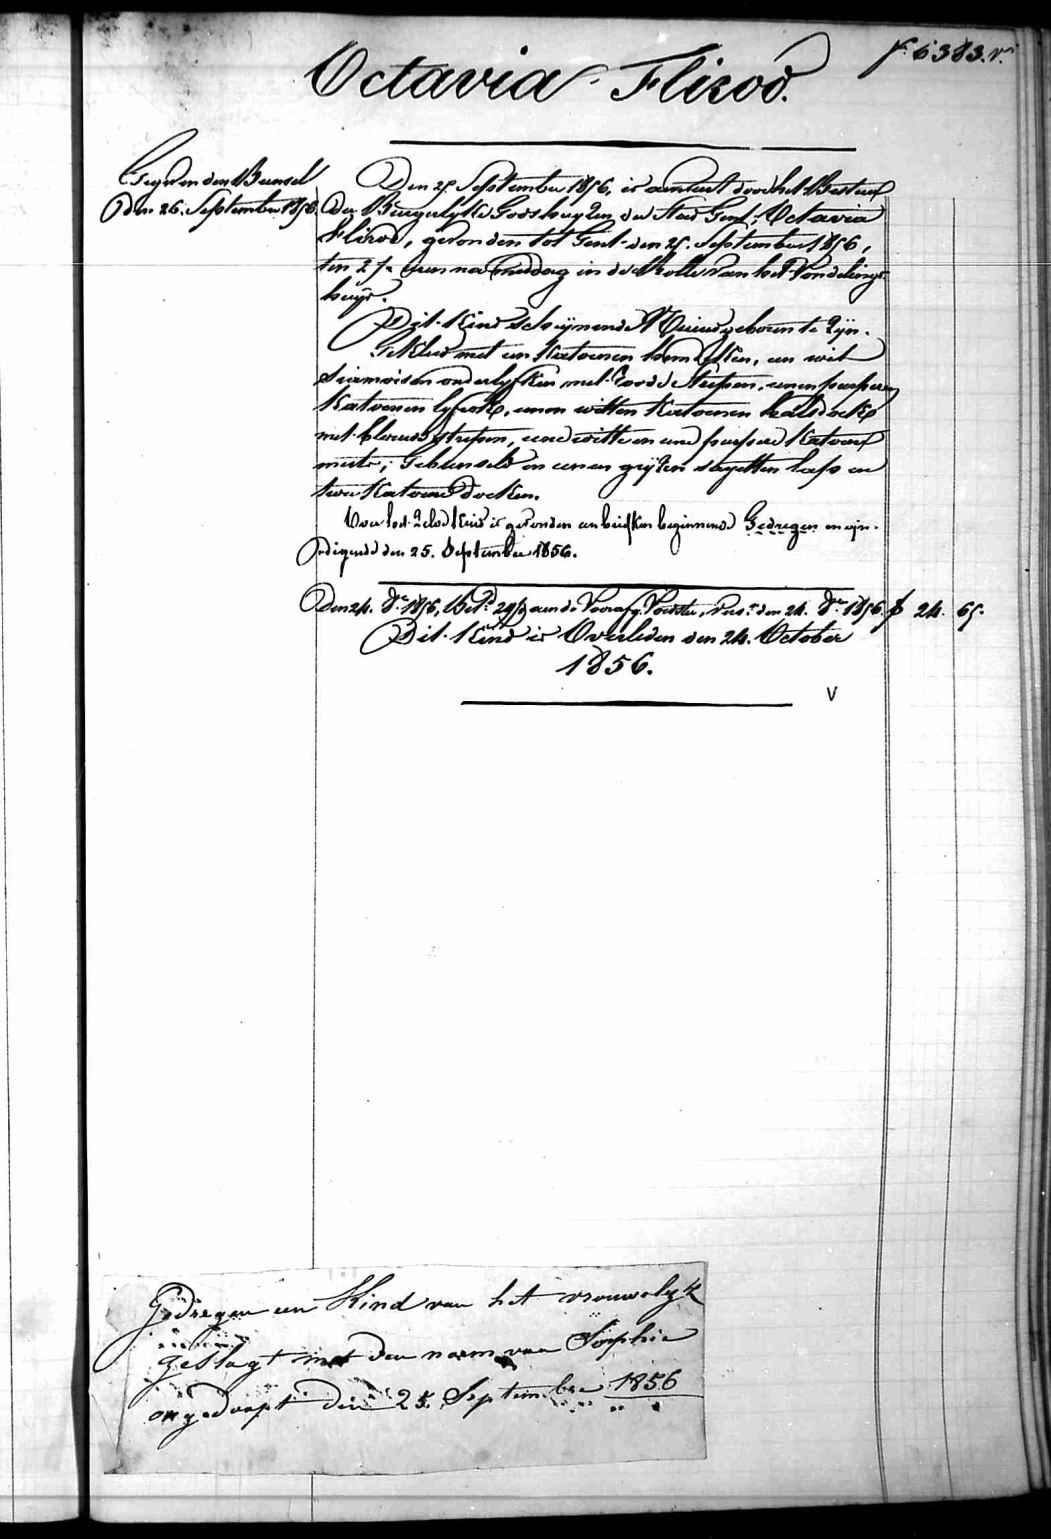 f. 6383. v.
Octavia Flirod.
den Bunsel
den 26. September 1856.
Den 25 September 1856, is aenveert door het Bestuer
Der Burgerlyke Godshuyzen der Stad Gent, Octavia
Flirod, gevonden tot Gent den 25. September 1856,
ten 2 uren na middag in de Rolle van het Vondelings-
huys.
Dit Kind schynende Nieuwgeboren te zyn.
Gekleed met een Katoenen hemdeken, een wit
siamoisen onderlyfken met roode strepen, eenen purperen
Katoenen lyfrok, eenen witten Katoenen halsdoek
met blauwe strepen, eene witte en eene purpere Katoene
muts; Gebunseld in eenen gryzen sayetten laps en
twee Katoene doeken.
Voor het Zelve Kind is gevonden een briefken beginnende Gedregen en eyn-
digende den 25. September 1856.
Den 24. 8re 1856, Betd. aen de Voorsten, den 24. 8re 1856. f 24. 65.
Dit Kind is Overleden den 24. October
1856.
V
Gedregen een Kind van het vrouwelyk
geslagt met den naem van Sophie
ongedoopt den 25. September 1856